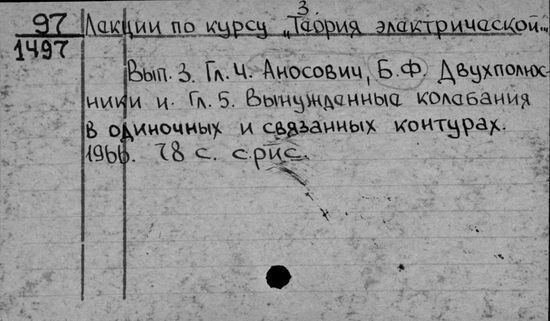 3.
97 Лекции по курсу „Теория электрической...
1497
Вып. 3. Гл. 4. Аносович, Б.Ф. Двухполюс-
ники и Гл. 5. Вынужденные колебания
в одиночных и связанных контурах.
1966. 78 с. с рис.